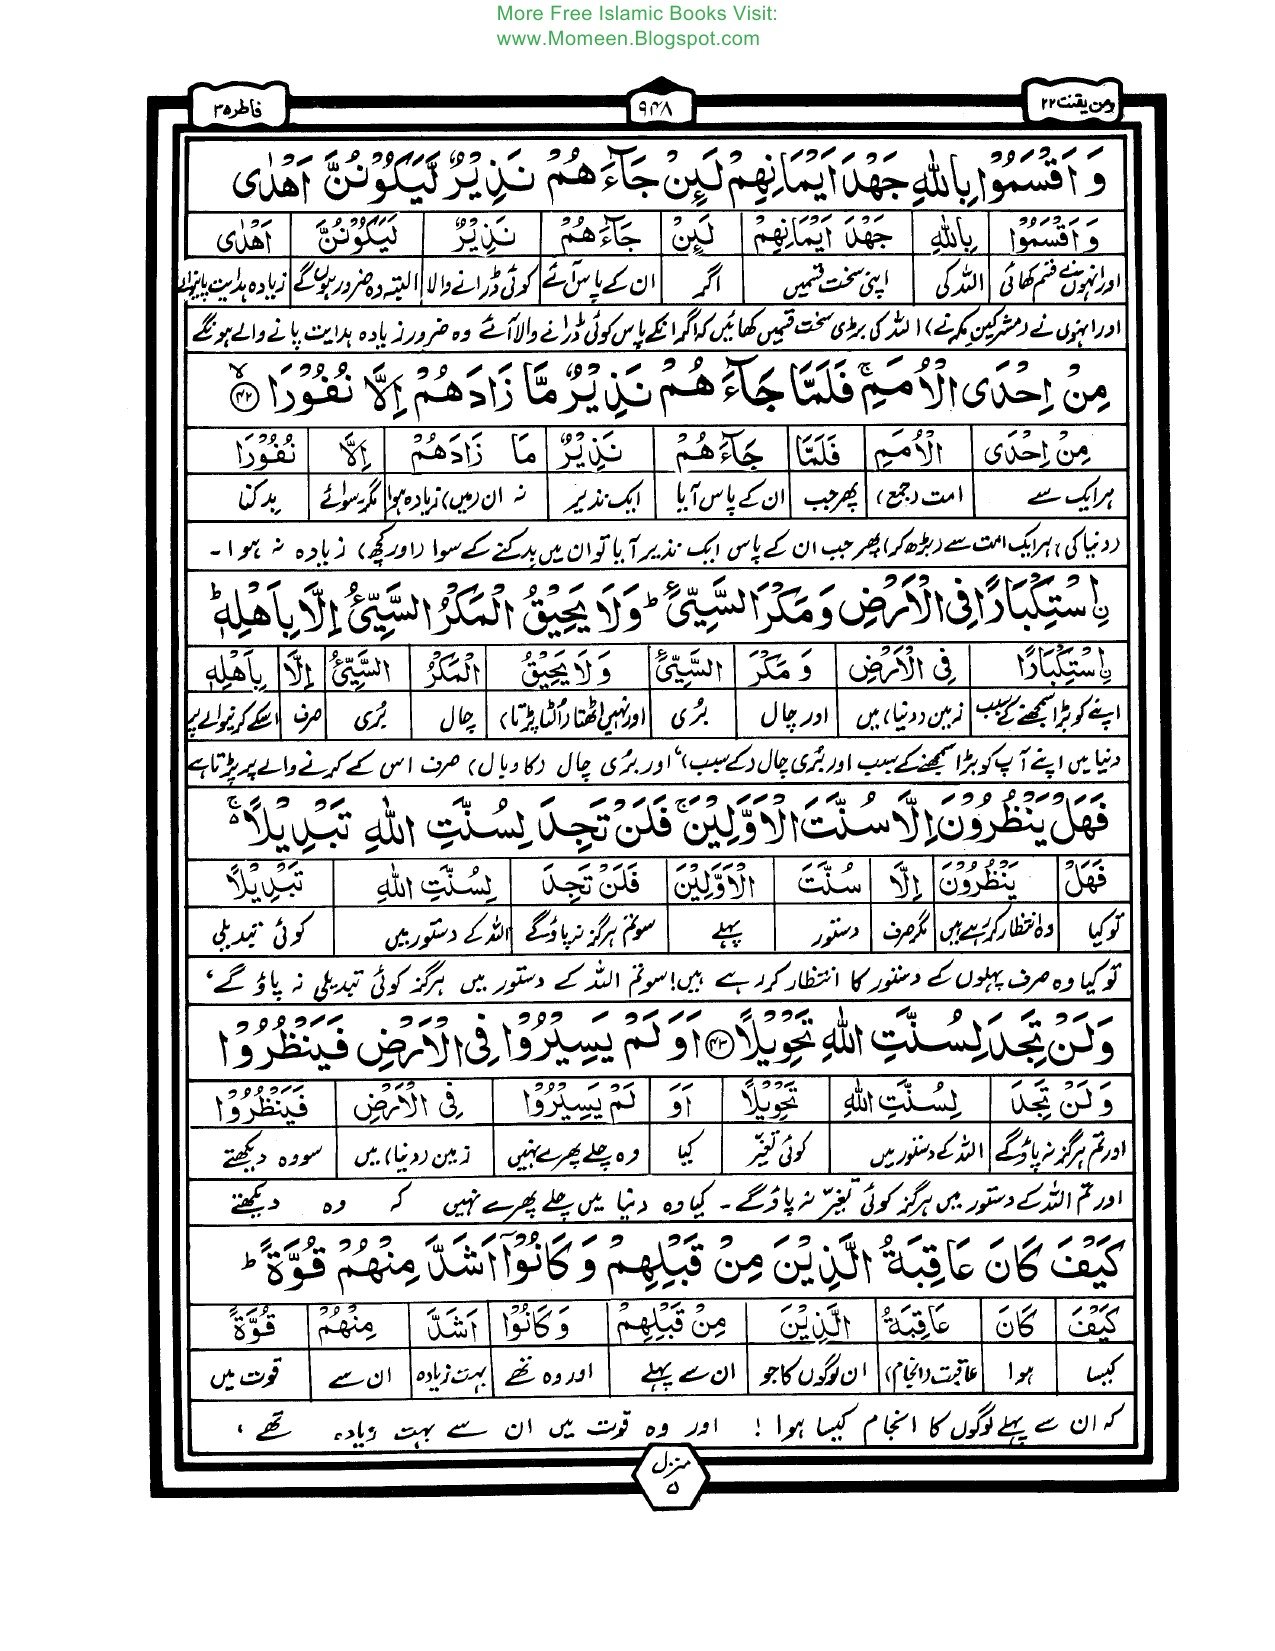 More Free Islamic Books Visit:
www.Momeen.Blogspot.com
ومن یقنت ۲۲
۹۴۸
فاطر ۳۵
وَ اَقْسَمُوْا بِاللّٰهِ جَهْدَ اَيْمَانِهِمْ لَىِٕنْ جَآءَهُمْ نَذِيْرٌ لَّيَكُوْنُنَّ اَهْدٰى
وَ اَقْسَمُوْا بِاللّٰهِ جَهْدَ اَيْمَانِهِمْ لَىِٕنْ جَآءَهُمْ نَذِيْرٌ لَيَكُوْنُنَّ اَهْدٰى
اور انہوں نے قسم کھائی اللہ کی اپنی سخت قسمیں اگر ان کے پاس آئے کوئی ڈرانے والا البتہ وہ ضرور ہوں گے زیادہ ہدایت پانیوالے
اور انہوں نے (مشرکین مکہ نے) اللہ کی بڑی سخت قسمیں کھائیں کہ اگر انکے پاس کوئی ڈرانے والا آئے وہ ضرور زیادہ ہدایت پانے والے ہونگے
مِنْ اِحْدَى الْاُمَمِ ۚ فَلَمَّا جَآءَهُمْ نَذِيْرٌ مَّا زَادَهُمْ اِلَّا نُفُوْرَا ۙ ﴿۴۲﴾
مِنْ اِحْدَى الْاُمَمِ فَلَمَّا جَآءَهُمْ نَذِيْرٌ مَا زَادَهُمْ اِلَّا نُفُوْرَا
ہر ایک سے امت (جمع) پھر جب ان کے پاس آیا ایک نذیر نہ ان (میں) زیادہ ہوا مگر۔سوائے بدکنا
(دنیا کی) ہر ایک امت سے (بڑھ کر) پھر جب ان کے پاس ایک نذیر آیا تو ان میں بدکنے کے سوا (اور کچھ) زیادہ نہ ہوا۔
ۨاسْتِكْبَارًا فِى الْاَرْضِ وَ مَكْرَ السَّيِّئِ ؕ وَ لَا يَحِيْقُ الْمَكْرُ السَّيِّئُ اِلَّا بِاَهْلِهٖ ؕ
ۨاسْتِكْبَارًا فِى الْاَرْضِ وَ مَكْرَ السَّيِّئِ وَ لَا يَحِيْقُ الْمَكْرُ السَّيِّئُ اِلَّا بِاَهْلِهٖ
اپنے کو بڑا سمجھنے کے سبب زمین (دنیا) میں اور چال بُری اور نہیں اٹھتا (اُلٹا پڑتا) چال بُری صرف اسکے کرنیوالے پر
دنیا میں اپنے آپ کو بڑا سمجھنے کے سبب اور بُری چال (کے سبب)، اور بُری چال (کا وبال) صرف اس کے کرنے والے پر پڑتا ہے
فَهَلْ يَنْظُرُوْنَ اِلَّا سُنَّتَ الْاَوَّلِيْنَ ۚ فَلَنْ تَجِدَ لِسُنَّتِ اللّٰهِ تَبْدِيْلًا ۚ۬
فَهَلْ يَنْظُرُوْنَ اِلَّا سُنَّتَ الْاَوَّلِيْنَ فَلَنْ تَجِدَ لِسُنَّتِ اللّٰهِ تَبْدِيْلًا
تو کیا وہ انتظار کر رہے ہیں مگر صرف دستور پہلے سو تم ہرگز نہ پاؤ گے اللہ کے دستور میں کوئی تبدیلی
تو کیا وہ صرف پہلوں کے دستور کا انتظار کر رہے ہیں! سو تم اللہ کے دستور میں ہرگز کوئی تبدیلی نہ پاؤ گے،
وَ لَنْ تَجِدَ لِسُنَّتِ اللّٰهِ تَحْوِيْلًا ﴿۴۳﴾ اَوَ لَمْ يَسِيْرُوْا فِى الْاَرْضِ فَيَنْظُرُوْا
وَ لَنْ تَجِدَ لِسُنَّتِ اللّٰهِ تَحْوِيْلًا اَوَ لَمْ يَسِيْرُوْا فِى الْاَرْضِ فَيَنْظُرُوْا
اور تم ہرگز نہ پاؤ گے اللہ کے دستور میں کوئی تغیّر کیا وہ چلے پھرے نہیں زمین (دنیا) میں سو وہ دیکھتے
اور تم اللہ کے دستور میں ہرگز کوئی تغیّر نہ پاؤ گے۔ کیا وہ دنیا میں چلے پھرے نہیں کہ وہ دیکھتے
كَيْفَ كَانَ عَاقِبَةُ الَّذِيْنَ مِنْ قَبْلِهِمْ وَ كَانُوْۤا اَشَدَّ مِنْهُمْ قُوَّةً ؕ
كَيْفَ كَانَ عَاقِبَةُ الَّذِيْنَ مِنْ قَبْلِهِمْ وَ كَانُوْۤا اَشَدَّ مِنْهُمْ قُوَّةً
کیسا ہوا عاقبت (انجام) ان لوگوں کا جو ان سے پہلے اور وہ تھے بہت زیادہ ان سے قوت میں
کہ ان سے پہلے لوگوں کا انجام کیسا ہوا! اور وہ قوت میں ان سے بہت زیادہ تھے،
منزل
۵